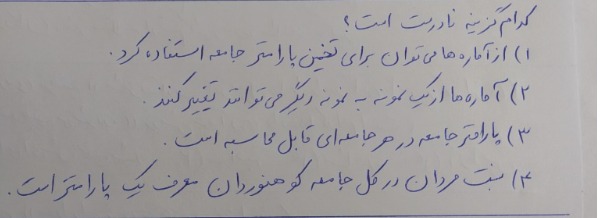 کدام گزینه نادرست است؟
۱) از آماره ها می توان برای تخمین پارامتر جامعه استفاده کرد.
۲) آماره ها از یک نمونه به نمونه دیگر می توانند تغییر کنند.
۳) پارامتر جامعه در هر جامعه ای قابل محاسبه است.
۴) نسبت مردان در کل جامعه کوهنوردان معرف یک پارامتر است.